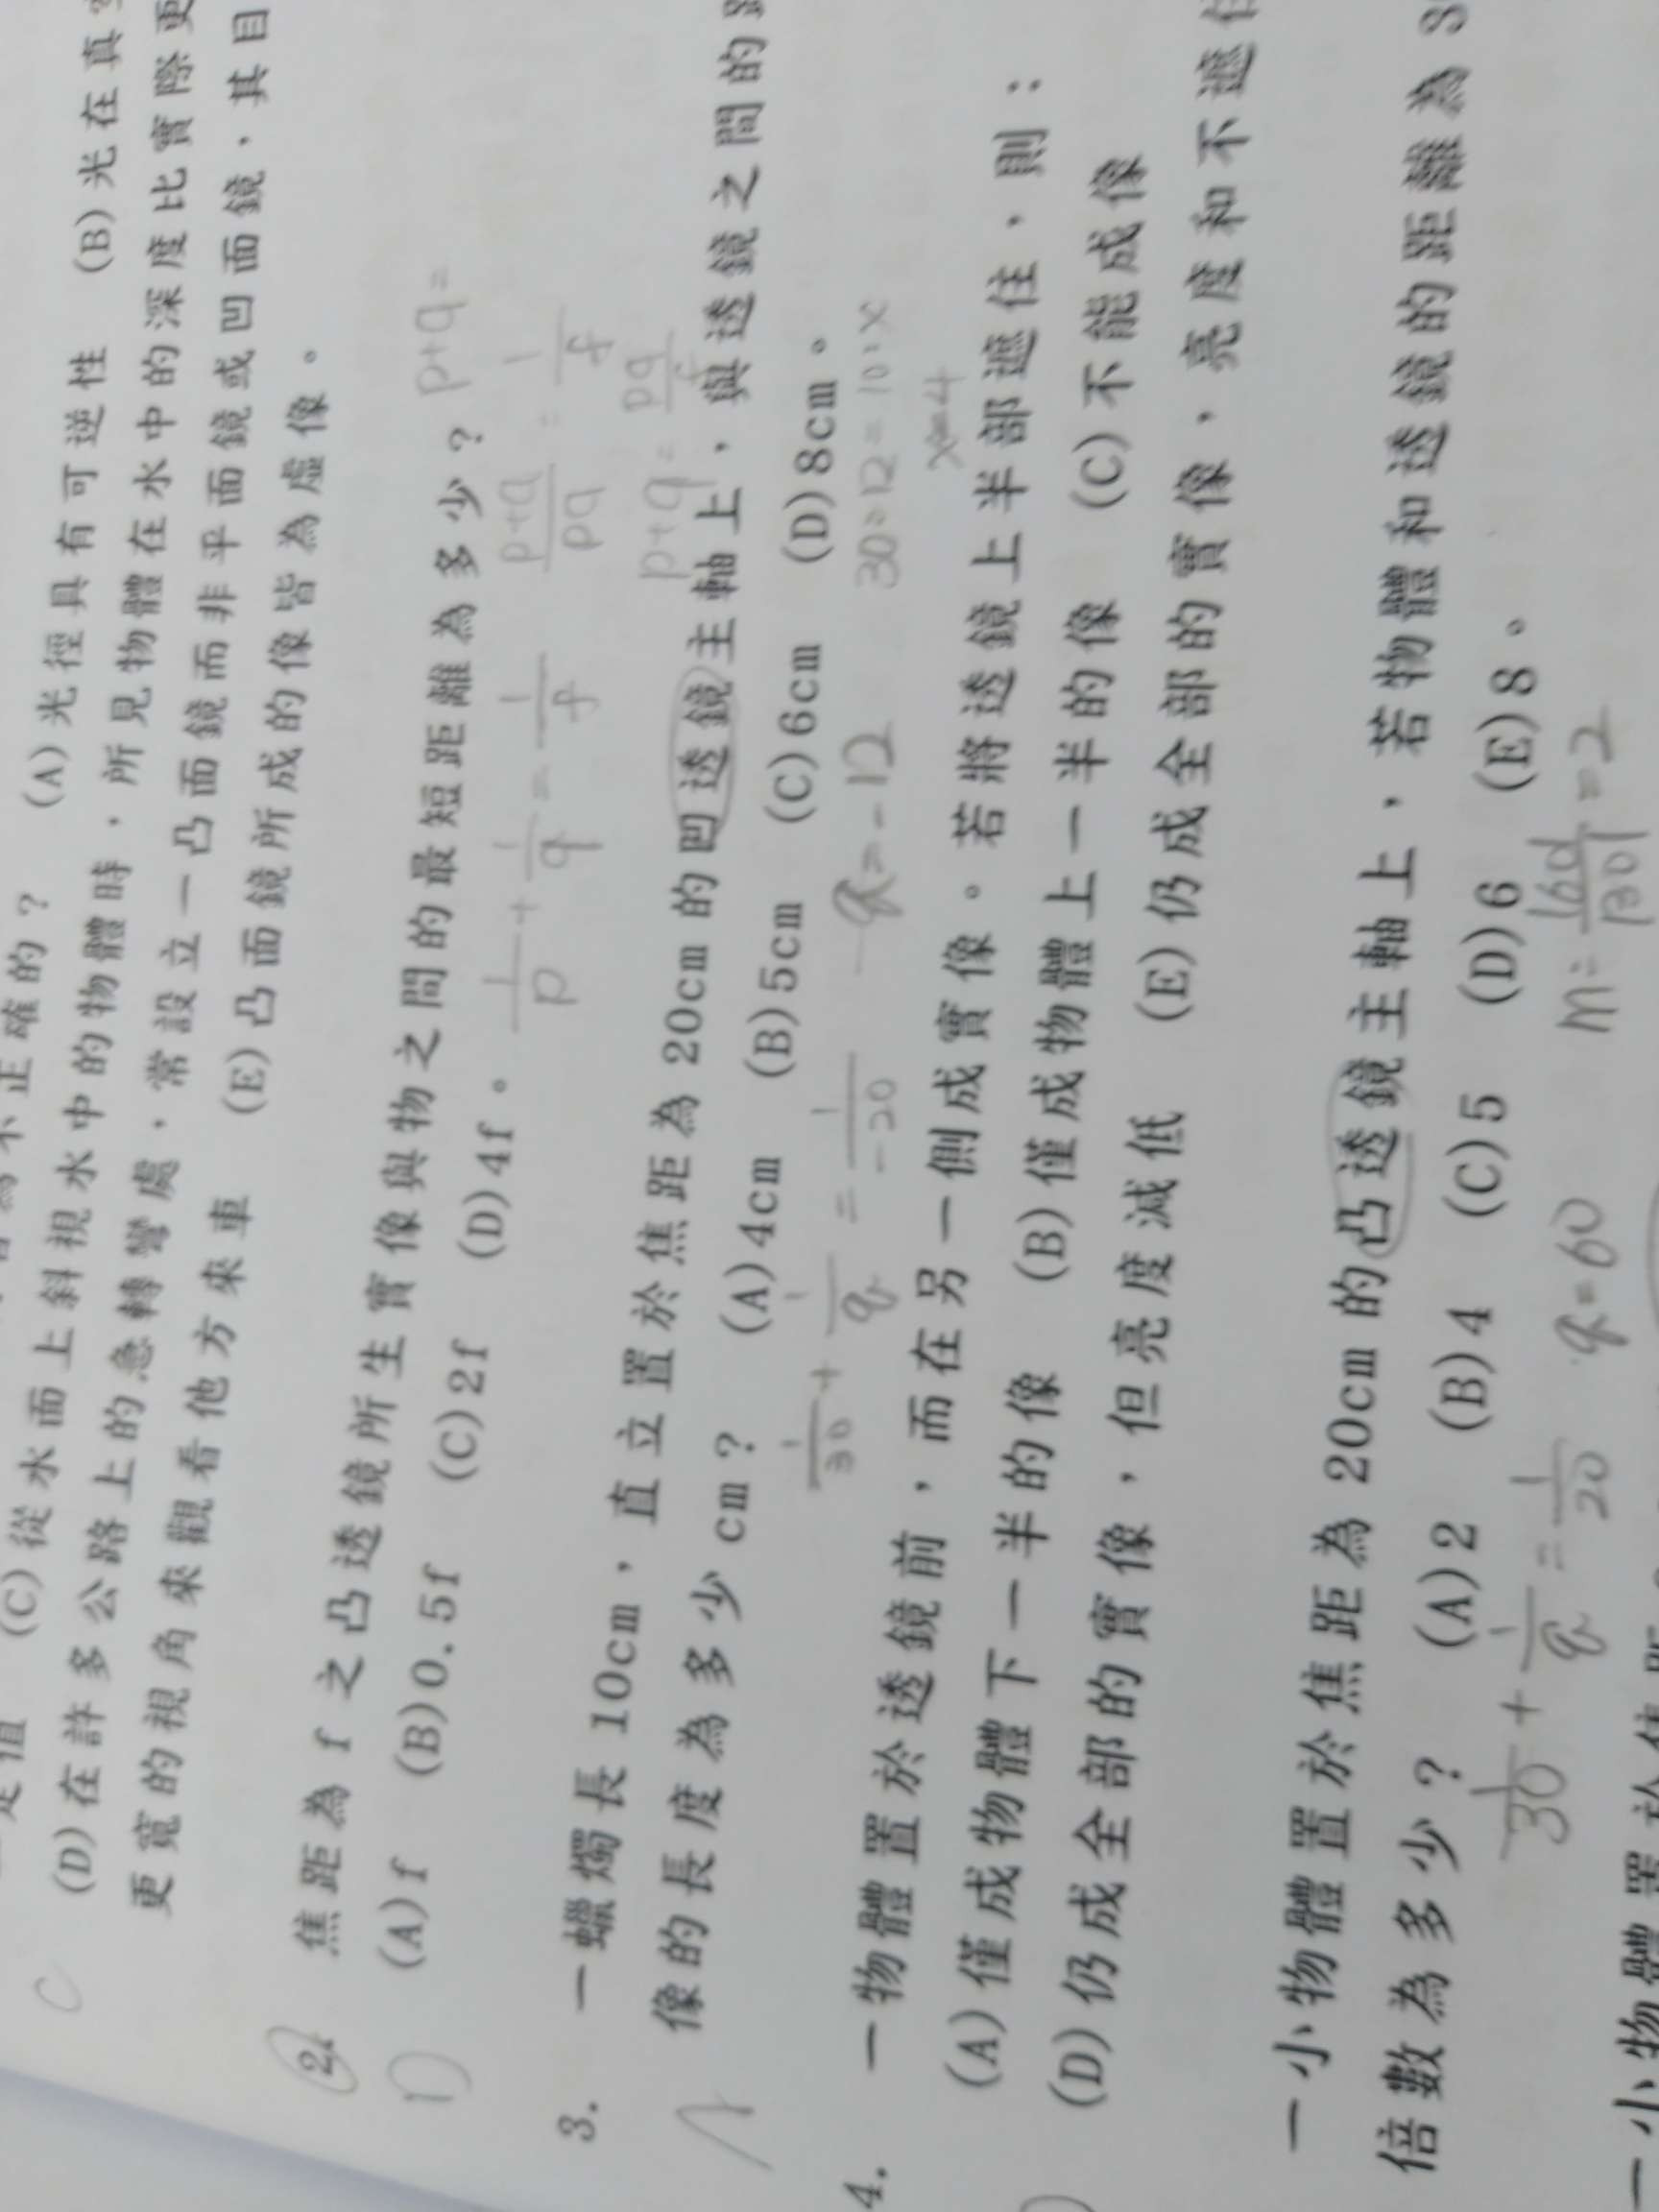 不正確的? (A)光徑具有可逆性 (B)光在真
(C)從水面上斜視水中的物體時,所見物體在水中的深度比實際更
(D)在許多公路上的急轉彎處,常設立一凸面鏡而非平面鏡或凹面鏡,其目
更寬的視角來觀看他方來車 (E)凸面鏡所成的像皆為虛像。
C
2. 焦距為 f 之凸透鏡所生實像與物之間的最短距離為多少? p+q=
(A)f (B)0.5f (C)2f (D)4f。
D
1/p + 1/q = 1/f p+q/pq = 1/f
p+q = pq/f
3. 一蠟燭長 10cm,直立置於焦距為 20cm 的凹透鏡主軸上,與透鏡之間的
像的長度為多少 cm? (A)4cm (B)5cm (C)6cm (D)8cm。
A
1/30 + 1/q = 1/-20 q=-12 30:12=10:x
x=4
4. 一物體置於透鏡前,而在另一側成實像。若將透鏡上半部遮住,則:
(A)僅成物體下一半的像 (B)僅成物體上一半的像 (C)不能成像
(D)仍成全部的實像,但亮度減低 (E)仍成全部的實像,亮度和不遮住
一小物體置於焦距為 20cm 的凸透鏡主軸上,若物體和透鏡的距離為 3
倍數為多少? (A)2 (B)4 (C)5 (D)6 (E)8。
1/30 + 1/q = 1/20 q=60 m= |60|/|30| =2
一小物體置於焦距